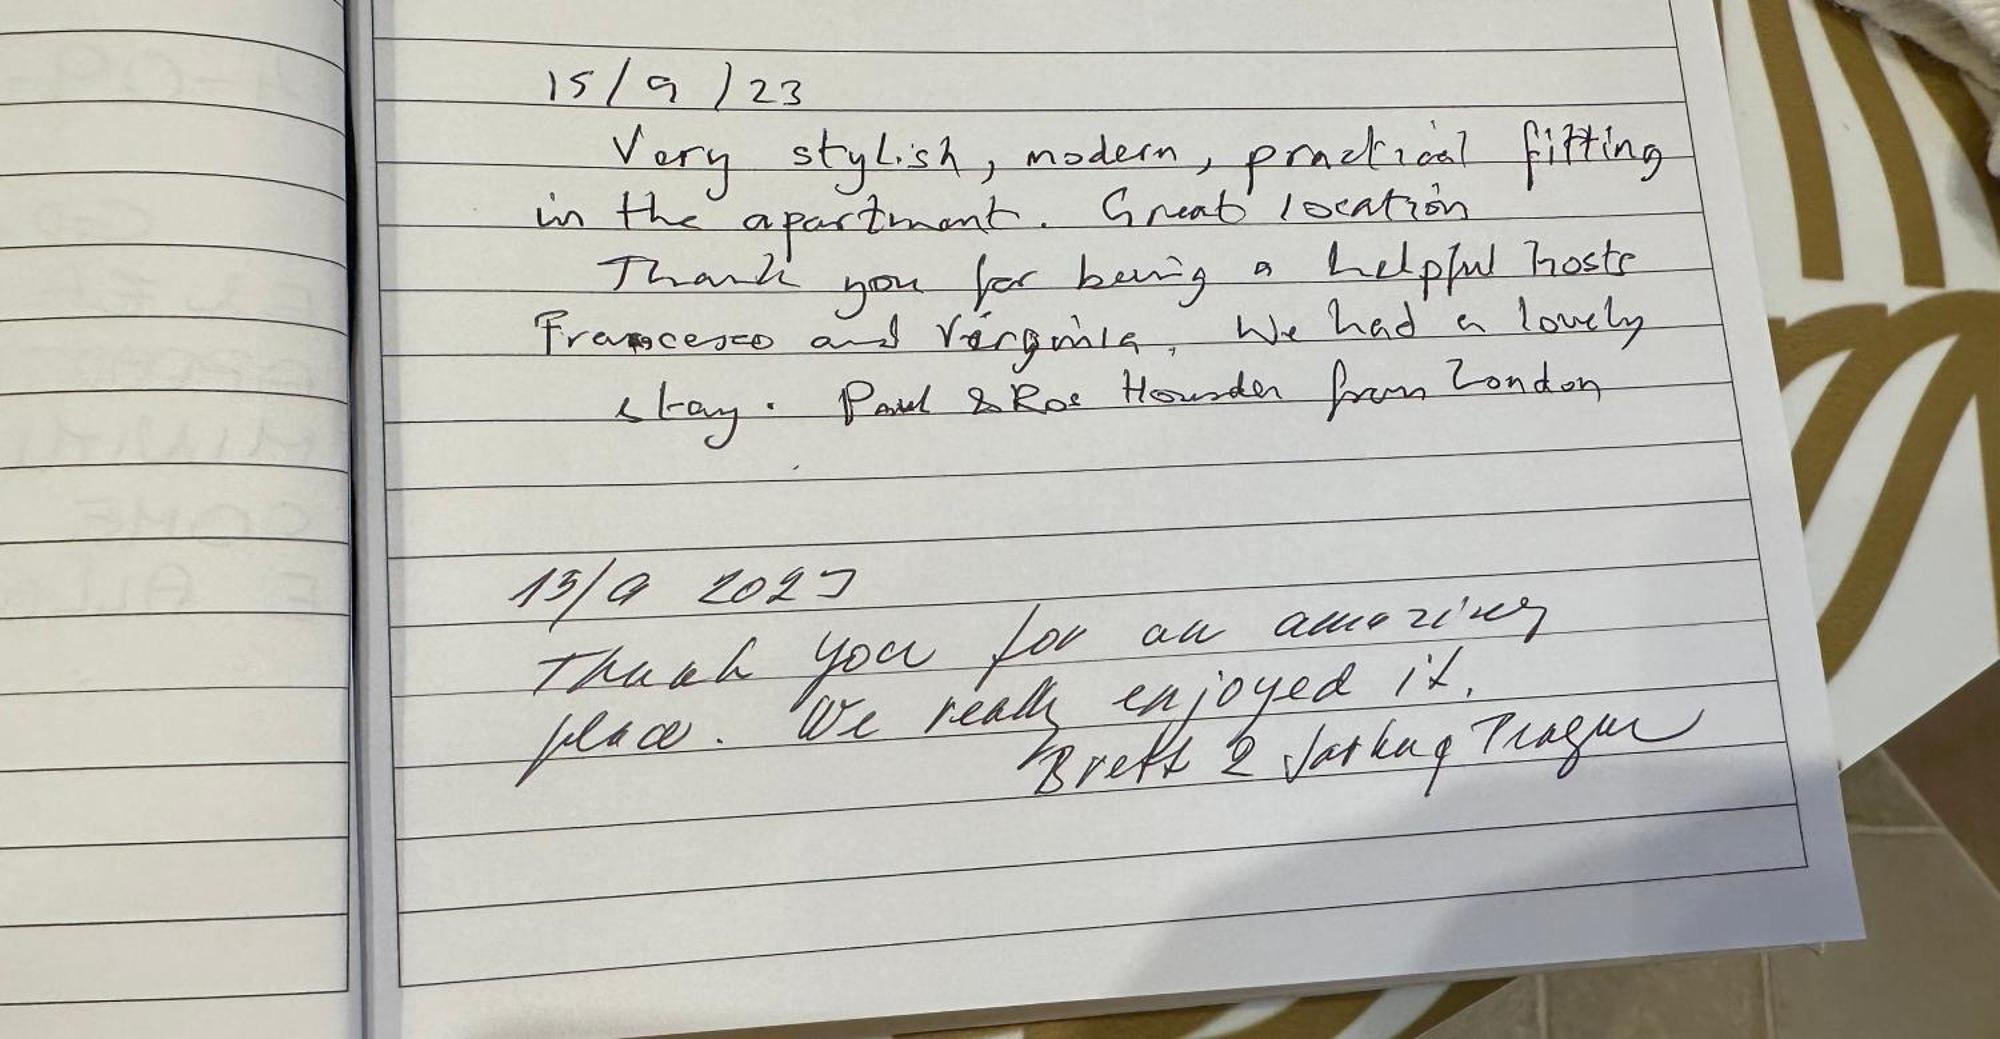 15/9/23
Very stylish, modern, practical fitting
in the apartment. Great location
Thank you for being a helpful hosts
Francesco and Virginia. We had a lovely
stay. Paul & Ros from London
15/9 2023
Thank you for an amazing
place. We really enjoyed it.
Brett & Prague